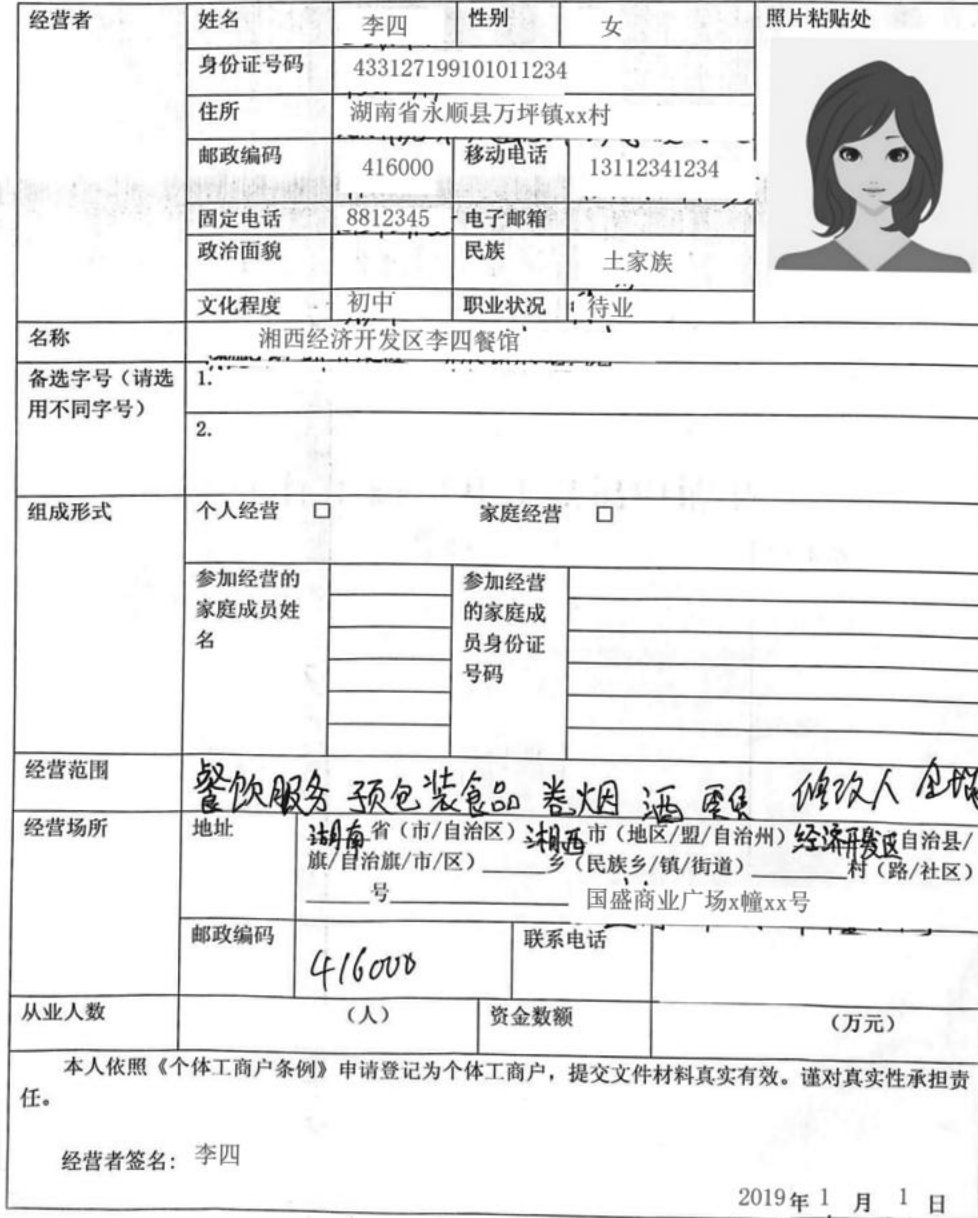 经营者 姓名 李四 性别 女 照片粘贴处
身份证号码 433127199101011234
住所 湖南省永顺县万坪镇xx村
邮政编码 416000 移动电话 13112341234
固定电话 8812345 电子邮箱
政治面貌 民族 土家族
文化程度 初中 职业状况 待业
名称 湘西经济开发区李四餐馆
备选字号（请选 1.
用不同字号）
2.
组成形式 个人经营 □ 家庭经营 □
参加经营的 参加经营
家庭成员姓 的家庭成
名 员身份证
号码
经营范围 餐饮服务 预包装食品 卷烟 酒 零售 修改人
经营场所 地址 湖南省（市/自治区）湘西市（地区/盟/自治州）经济开发区自治县/
旗/自治旗/市/区）______乡（民族乡/镇/街道）______村（路/社区）
______号______ 国盛商业广场x幢xx号
邮政编码 416000 联系电话
从业人数 （人） 资金数额 （万元）
本人依照《个体工商户条例》申请登记为个体工商户，提交文件材料真实有效。谨对真实性承担责
任。
经营者签名：李四
2019年 1 月 1 日